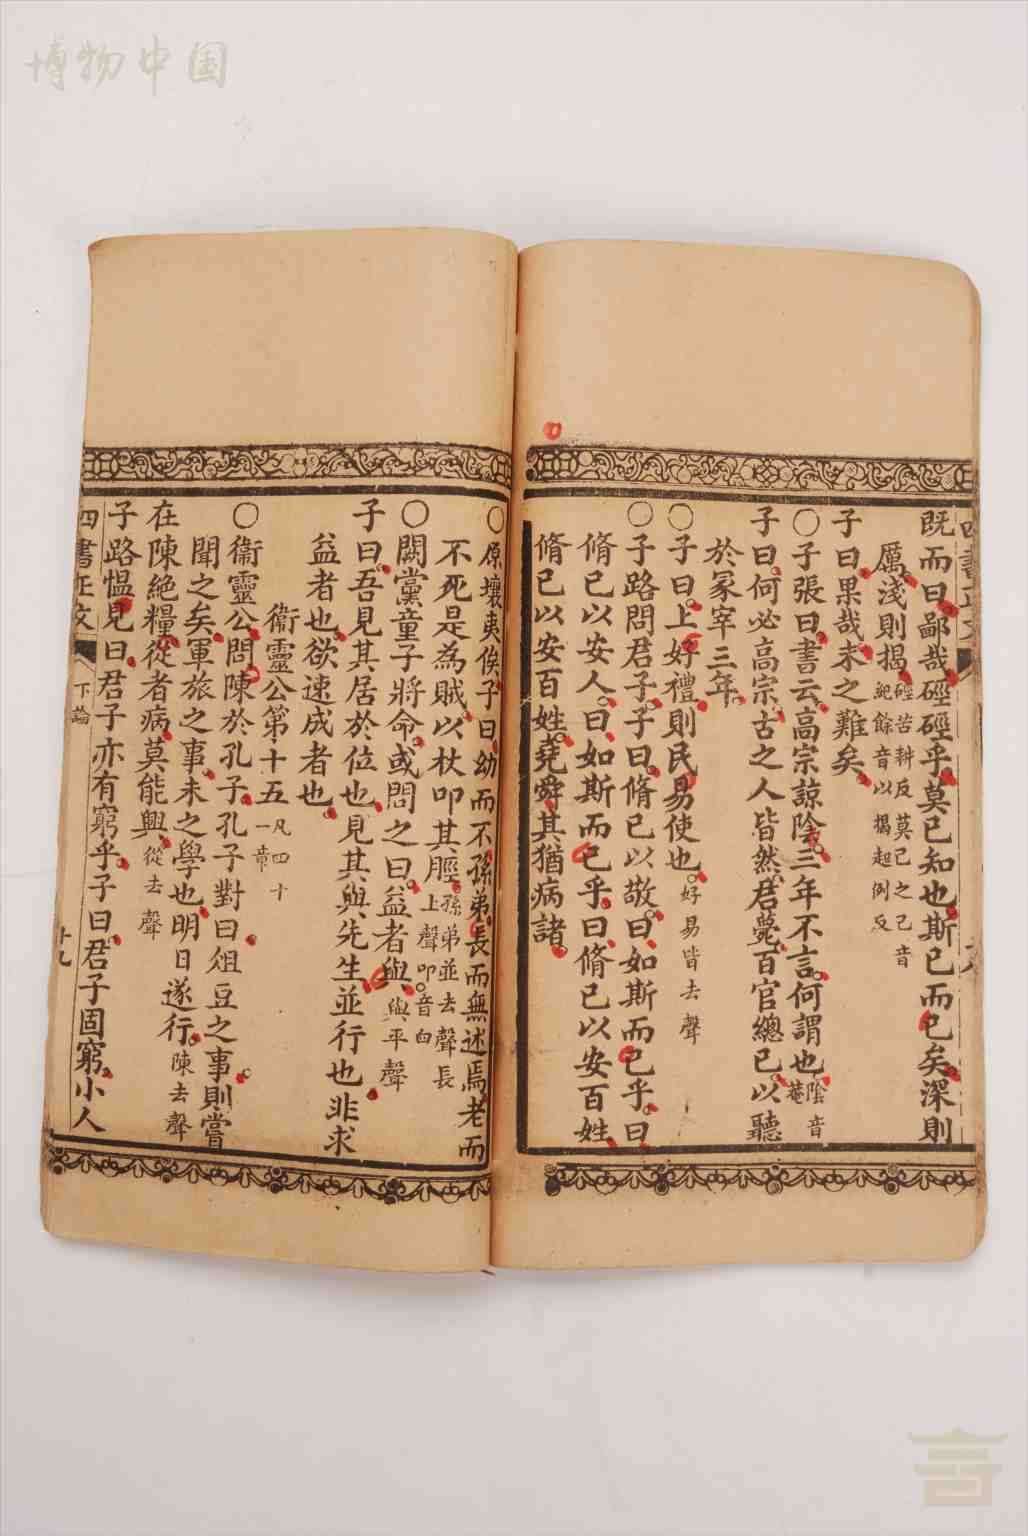 博物中国
既而曰鄙哉硜硜乎莫己知也斯已而已矣深則
厲淺則揭硜苦耕反莫己之己音
紀餘音以揭起例反
子曰果哉末之難矣
〇子張曰書云高宗諒陰三年不言何謂也陰音
菴
子曰何必高宗古之人皆然君薨百官總己以聽
於冢宰三年
〇子曰上好禮則民易使也好易皆去聲
〇子路問君子子曰脩己以敬曰如斯而已乎曰
脩己以安人曰如斯而已乎曰脩己以安百姓
脩己以安百姓堯舜其猶病諸
〇原壤夷俟子曰幼而不孫弟長而無述焉老而
不死是為賊以杖叩其脛孫弟並去聲長
上聲叩音白
〇闕黨童子將命或問之曰益者與與平聲
子曰吾見其居於位也見其與先生並行也非求
益者也欲速成者也
衞靈公第十五凡四十
一章
〇衞靈公問陳於孔子孔子對曰俎豆之事則嘗
聞之矣軍旅之事未之學也明日遂行陳去聲
在陳絕糧從者病莫能興從去聲
子路慍見曰君子亦有窮乎子曰君子固窮小人
四書正文
下論
十九